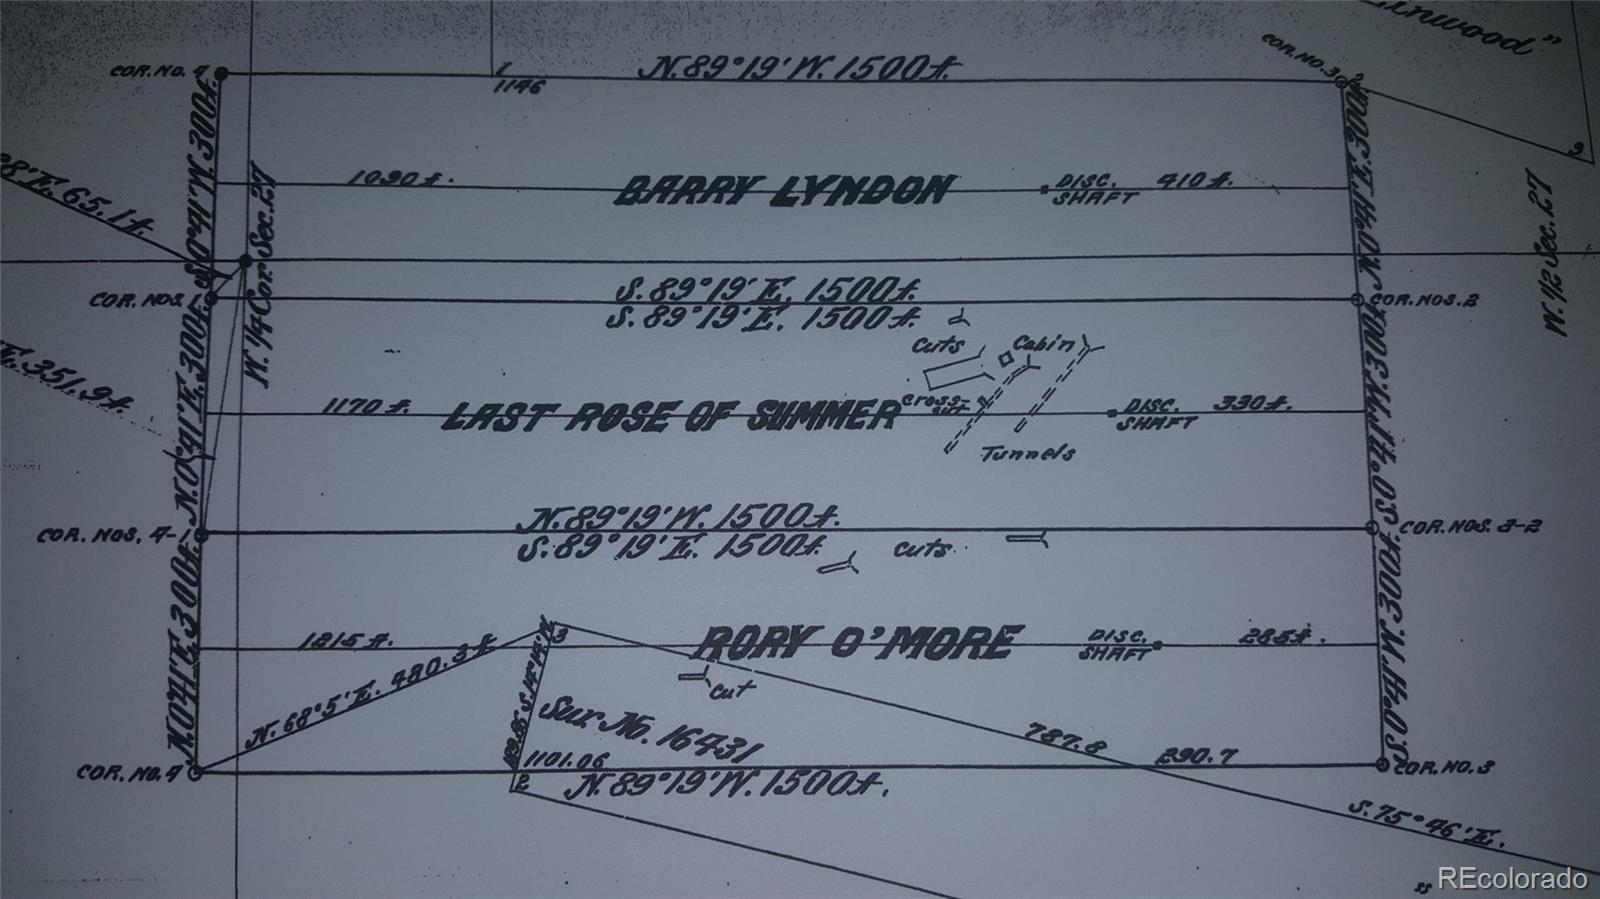 Linwood"
COR. NO. 3
2
COR. NO. 4
N. 89°19' W. 1500 ft.
1
1146
3
S. 0°41' W. 300 ft.
N. 0°41' E. 300 ft.
W. 1/4 Cor. Sec. 27
W. 1/2 Sec. 27
8' E. 65.1 ft.
1090 ft.
BARRY LYNDON
DISC. SHAFT
410 ft.
COR. NOS. 1
S. 89°19' E. 1500 ft.
S. 89°19' E. 1500 ft.
COR. NOS. 2
Cuts
Cabin
E. 351.9 ft.
N. 0°41' E. 300 ft.
1170 ft.
LAST ROSE OF SUMMER
Cross-cut
DISC. SHAFT
330 ft.
S. 0°41' W. 300 ft.
Tunnels
COR. NOS. 4-1
N. 89°19' W. 1500 ft.
S. 89°19' E. 1500 ft.
Cuts
COR. NOS. 3-2
N. 0°41' E. 300 ft.
1215 ft.
N. 68°5' E. 480.3 ft
3
RORY O'MORE
DISC. SHAFT
285 ft.
S. 0°41' W. 300 ft.
S. 14°14' W.
Cut
Sur. No. 16431
787.8
290.7
COR. NO. 4
1101.06
2
N. 89°19' W. 1500 ft.
COR. NO. 3
S. 75°46' E.
REcolorado